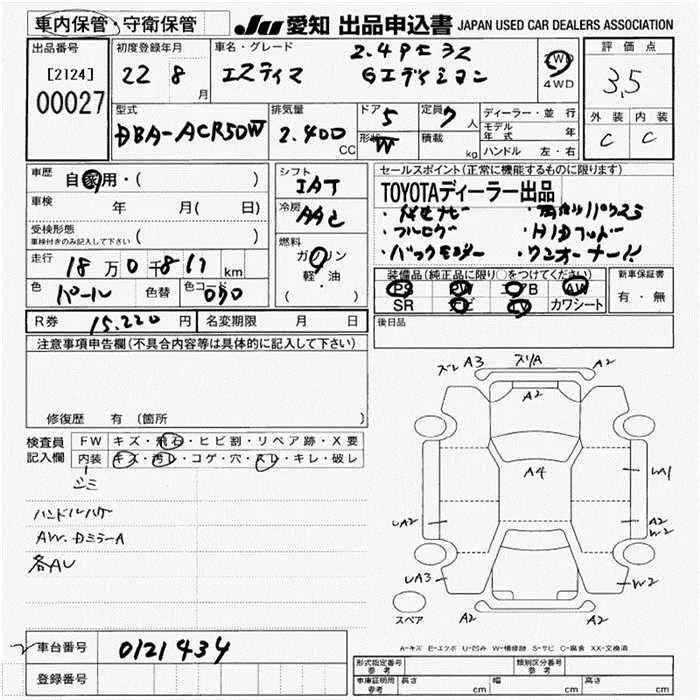 車内保管・守衛保管
JU 愛知 出品申込書 JAPAN USED CAR DEALERS ASSOCIATION
出品番号
[2124]
00027
初度登録年月
22 8 月
車名・グレード
エスティマ
2.4アエラス
Gエディション
2WD
4WD
評価点
3,5
外装 内装
C C
型式
DBA-ACR50W
排気量
2.400 CC
ドア 5
形状 W
定員 7 人
積載 kg
ディーラー・並行
モデル年式 年
ハンドル 左・右
車歴
自家用・( )
車検 年 月( 日)
受検形態
車検付きのみ記入して下さい ( )
走行 18万0千817 km
色 パール 色替 色コード 070
シフト
IAT
冷房
AAC
燃料
ガソリン
軽・油
( )
セールスポイント(正常に機能するものに限ります)
TOYOTAディーラー出品
・純正ナビ ・両側パワスラ
・フルセグ ・HIDヘッド
・バックモニター ・ワンオーナー
装備品(純正品に限り○をつけてください)
PS PW エアB AW
SR ナビ TV カワシート
新車保証書
有・無
R券 15.220 円 名変期限 月 日
後日品
注意事項申告欄(不具合内容等は具体的に記入して下さい)
修復歴 有 (箇所 )
検査員記入欄
FW キズ・飛石・ヒビ割・リペア跡・X要
内装 キズ・汚レ・コゲ・穴・スレ・キレ・破レ
シミ
ハンドルハゲ
AW.DミラーA
各AU
ズレ A3 ズリA A2
A2
A4
LA1
UA2
A2
W2
UA3
W2
スペア
A2 A2
A-キズ E-エクボ U-凹み W-補修跡 S-サビ C-腐食 XX-交換済
車台番号 0121434
登録番号
形式指定番号 参考
類別区分番号 参考
車庫証明用 参考 長さ cm 幅 cm 高さ cm